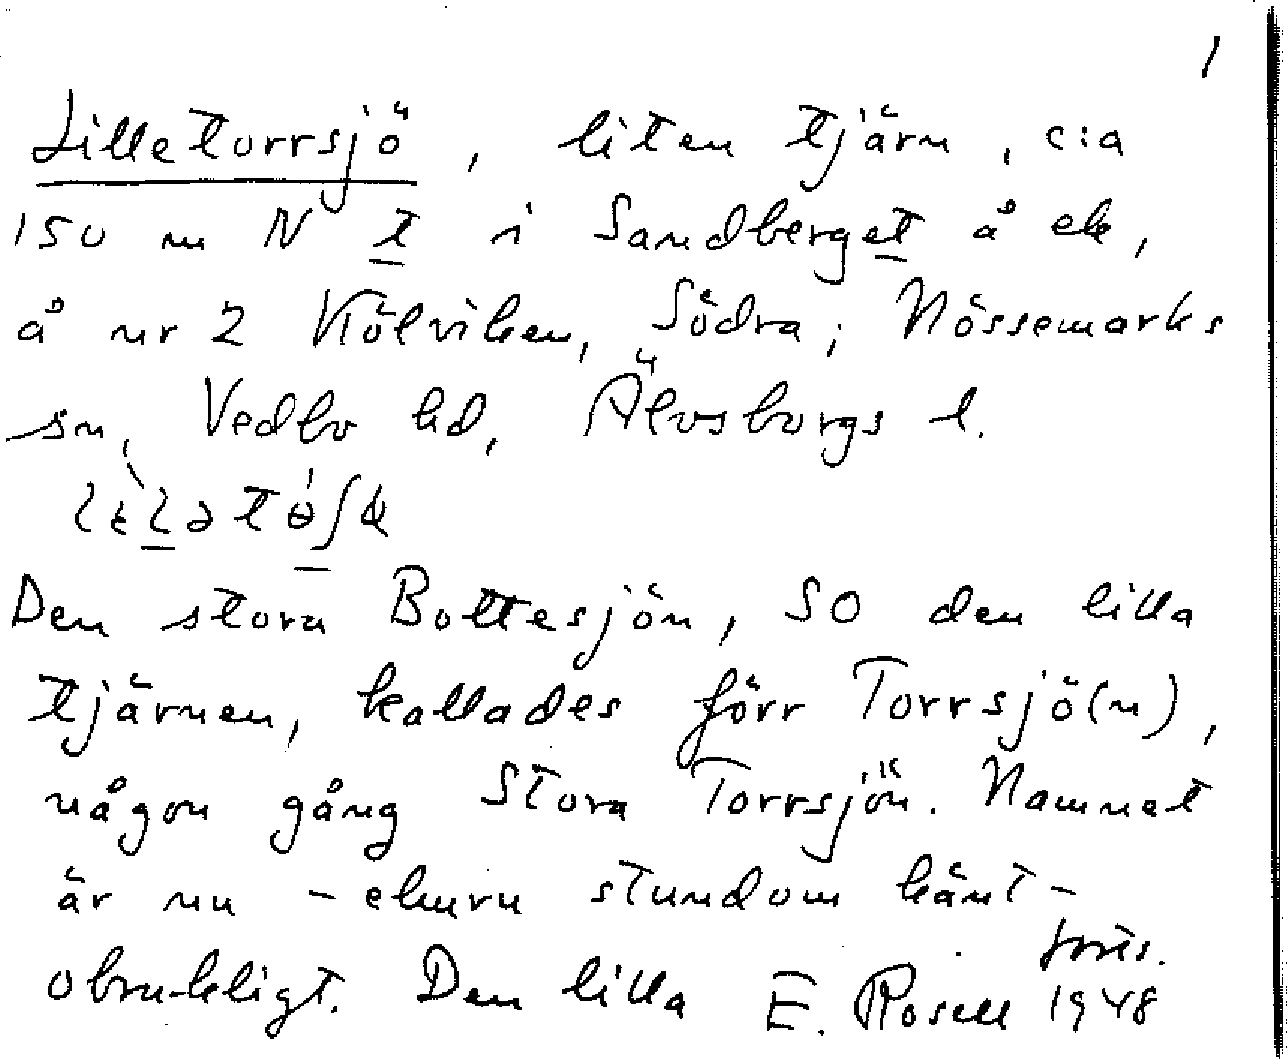 1
Lilletorrsjö, liten tjärn, c:a
150 m N t i Sandberget å ek,
å nr 2 Kölviken, Södra; Nössemarks
sn, Vedbo hd, Älvsborgs l.
Den stora Bottesjön, SO den lilla
tjärnen, kallades förr Torrsjö(n),
någon gång Stora Torrsjön. Namnet
är nu – ehuru stundom känt –
obrukligt. Den lilla
forts.
E. Rosell 1948